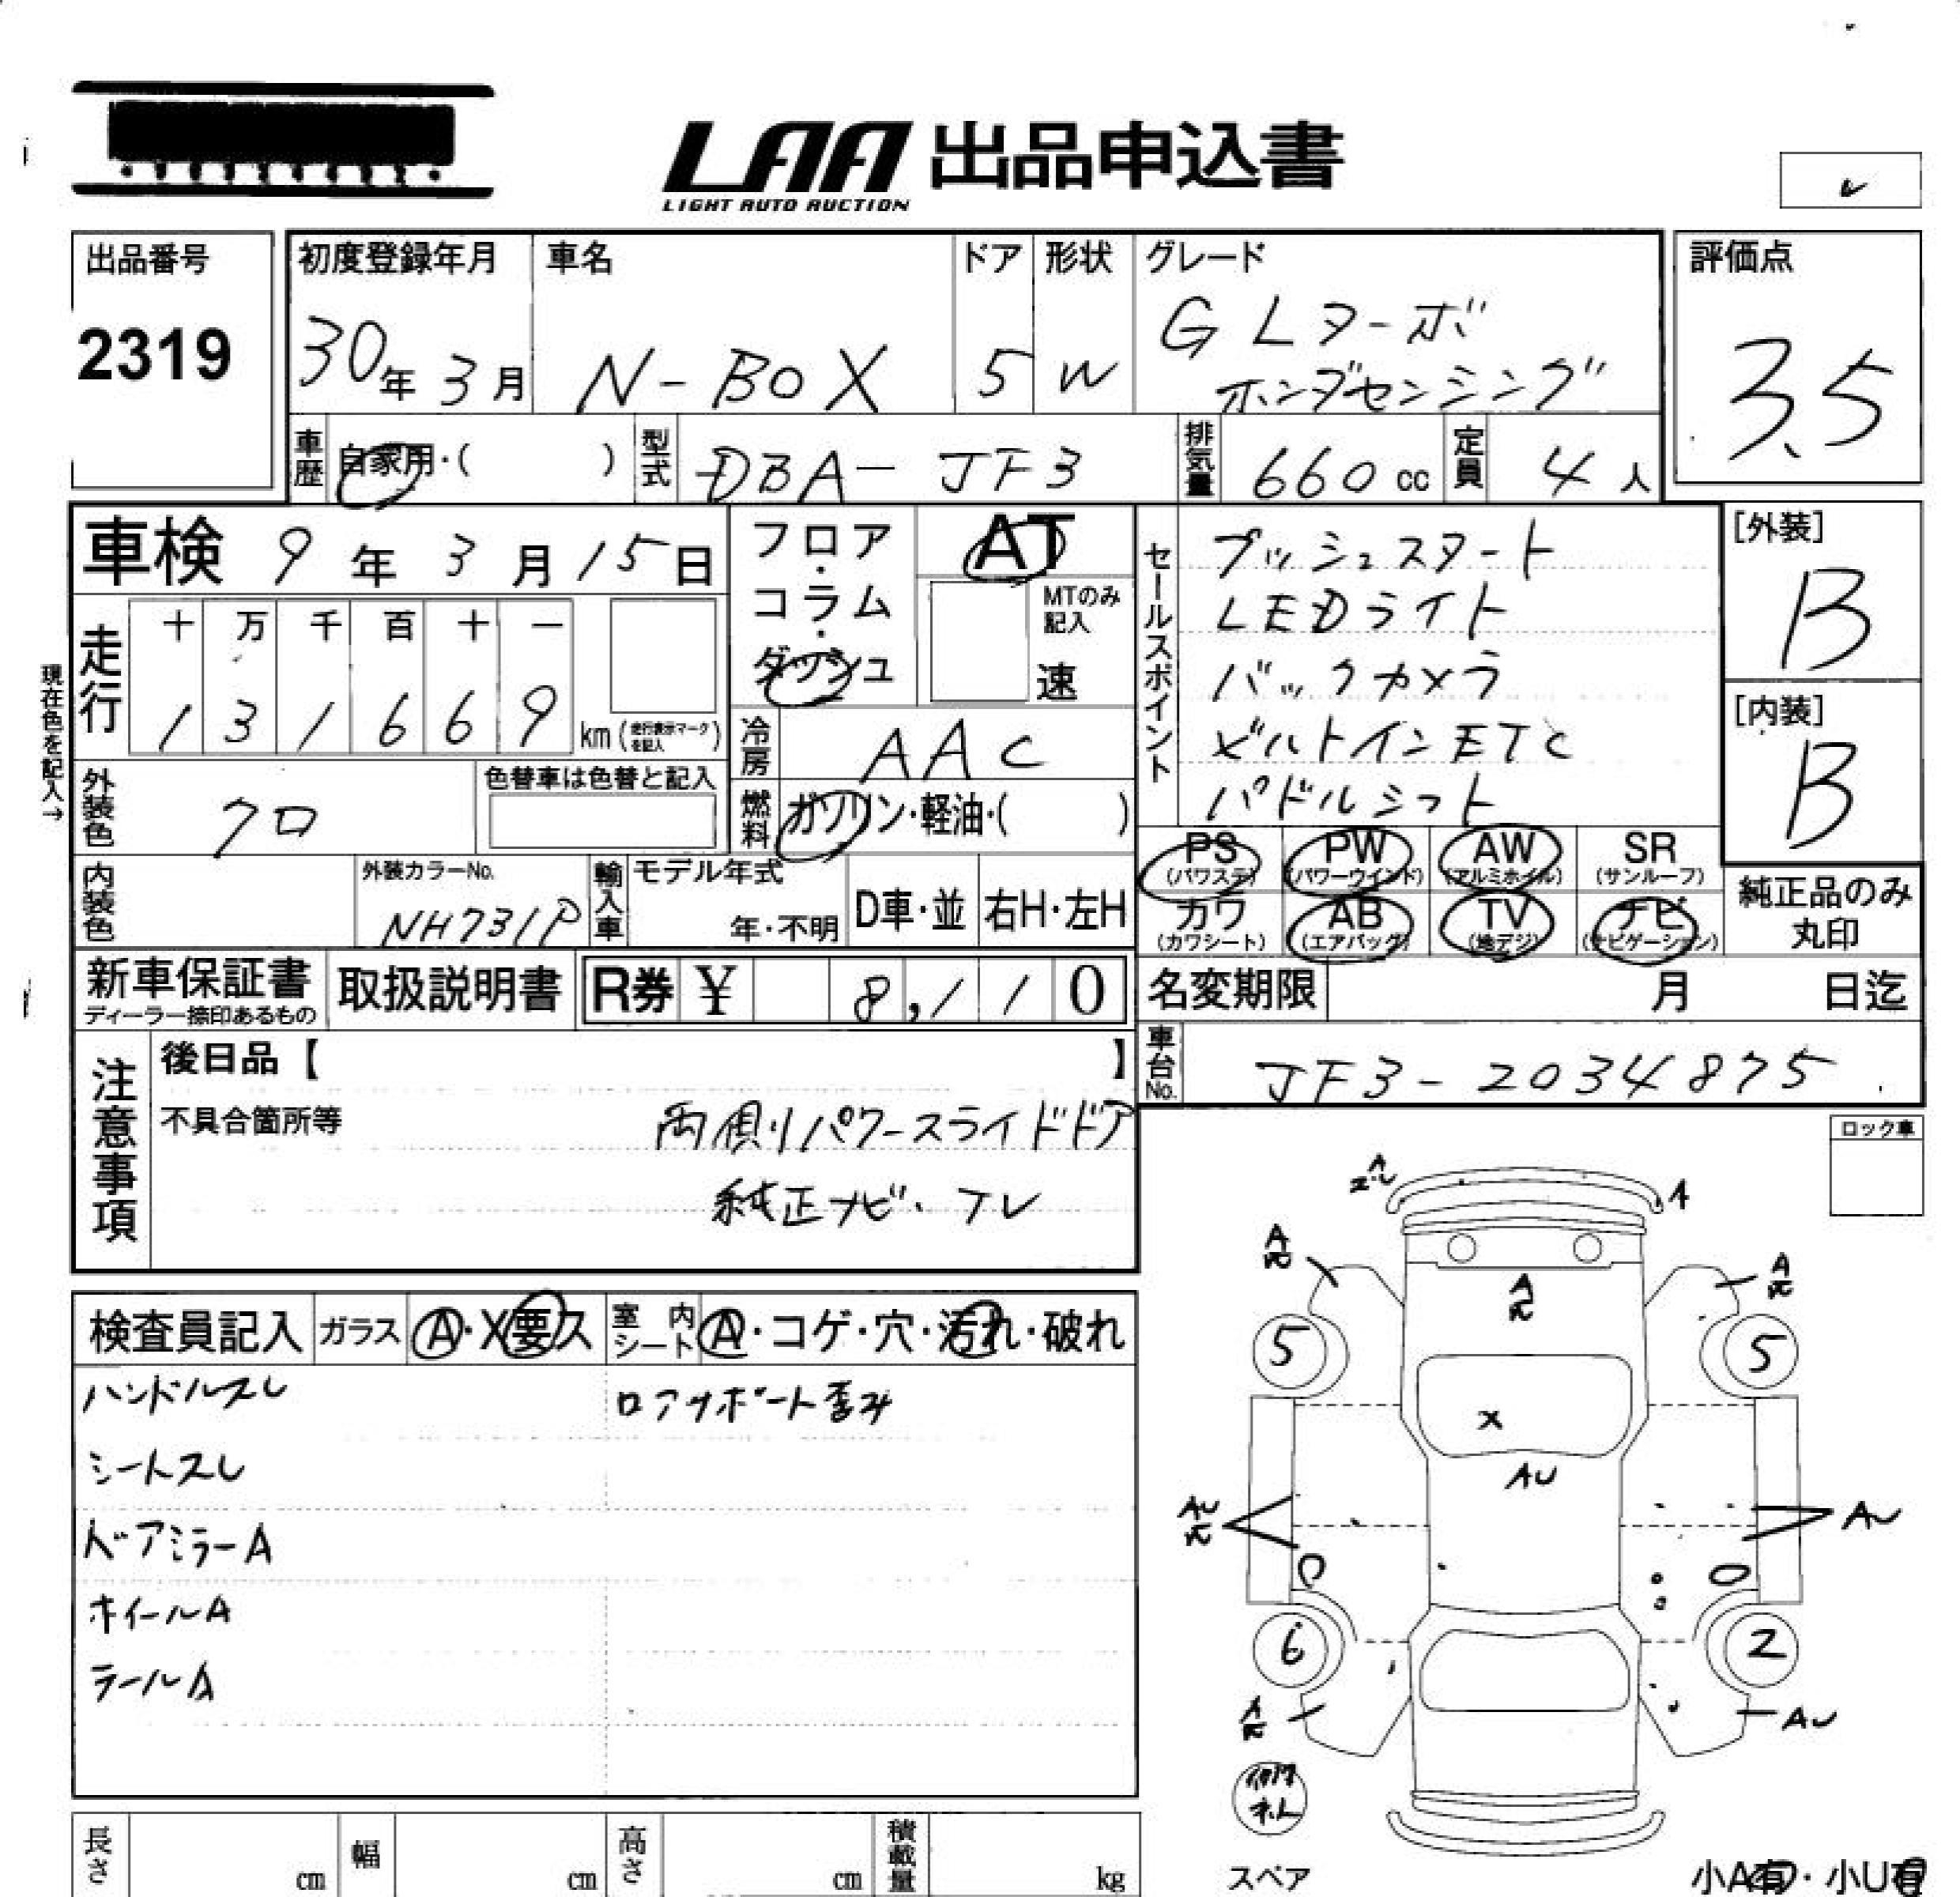 LAA 出品申込書
LIGHT AUTO AUCTION
出品番号
2319
初度登録年月
30年 3月
車名
N-BOX
ドア
5
形状
W
グレード
G Lターボ
ホンダセンシング
評価点
3.5
車歴
自家用・( )
型式
DBA-JF3
排気量
660 cc
定員
4 人
車検 9年 3月 15日
フロア・コラム・ダッシュ
AT
MTのみ記入
速
セールスポイント
プッシュスタート
LEDライト
バックカメラ
ビルトインETC
パドルシフト
[外装]
B
[内装]
B
現在色を記入→
走行
十 万 千 百 十 一
1 3 1 6 6 9 km (走行表示マークを記入)
冷房
AAC
外装色
クロ
色替車は色替と記入
燃料
ガソリン・軽油・( )
PS (パワステ)
PW (パワーウインド)
AW (アルミホイル)
SR (サンルーフ)
カワ (カワシート)
AB (エアバッグ)
TV (地デジ)
ナビ (ナビゲーション)
純正品のみ丸印
内装色
外装カラーNo.
NH731P
輸入車
モデル年式
年・不明
D車・並
右H・左H
新車保証書
ディーラー捺印あるもの
取扱説明書
R券 ¥ 8,110
名変期限 月 日迄
車台No.
JF3-2034875
注意事項
後日品【 】
不具合箇所等
両側パワースライドドア
純正ナビ・テレ
ロック車
検査員記入
ガラス
A・X要ス
室内シート
A・コゲ・穴・汚れ・破れ
ハンドルスレ
ロアサポート歪み
シートスレ
ドアミラーA
ホイールA
ラールA
A
A
A
A
A
5
5
X
AU
AU
AU
6
2
A
AU
スペア
小A有・小U有
長さ cm
幅 cm
高さ cm
積載量 kg